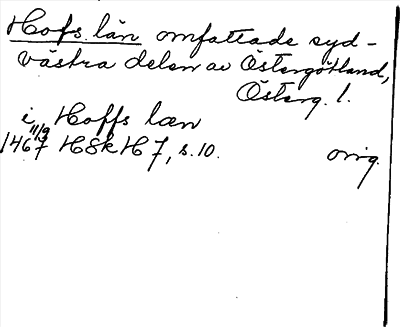 Hofs län omfattade syd-
västra delen av Östergötland,
Österg. l.
i Hoffs læn
1467 11/9 HSkH 7, s. 10. orig.